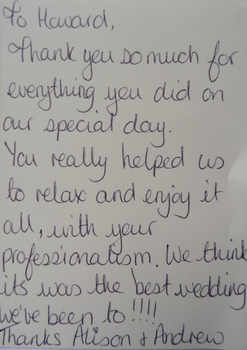 To Howard,
Thank you so much for
everything you did on
our special day.
You really helped us
to relax and enjoy it
all, with your
professionalism. We think
its was the best wedding
we've been to!!!!
Thanks Alison & Andrew